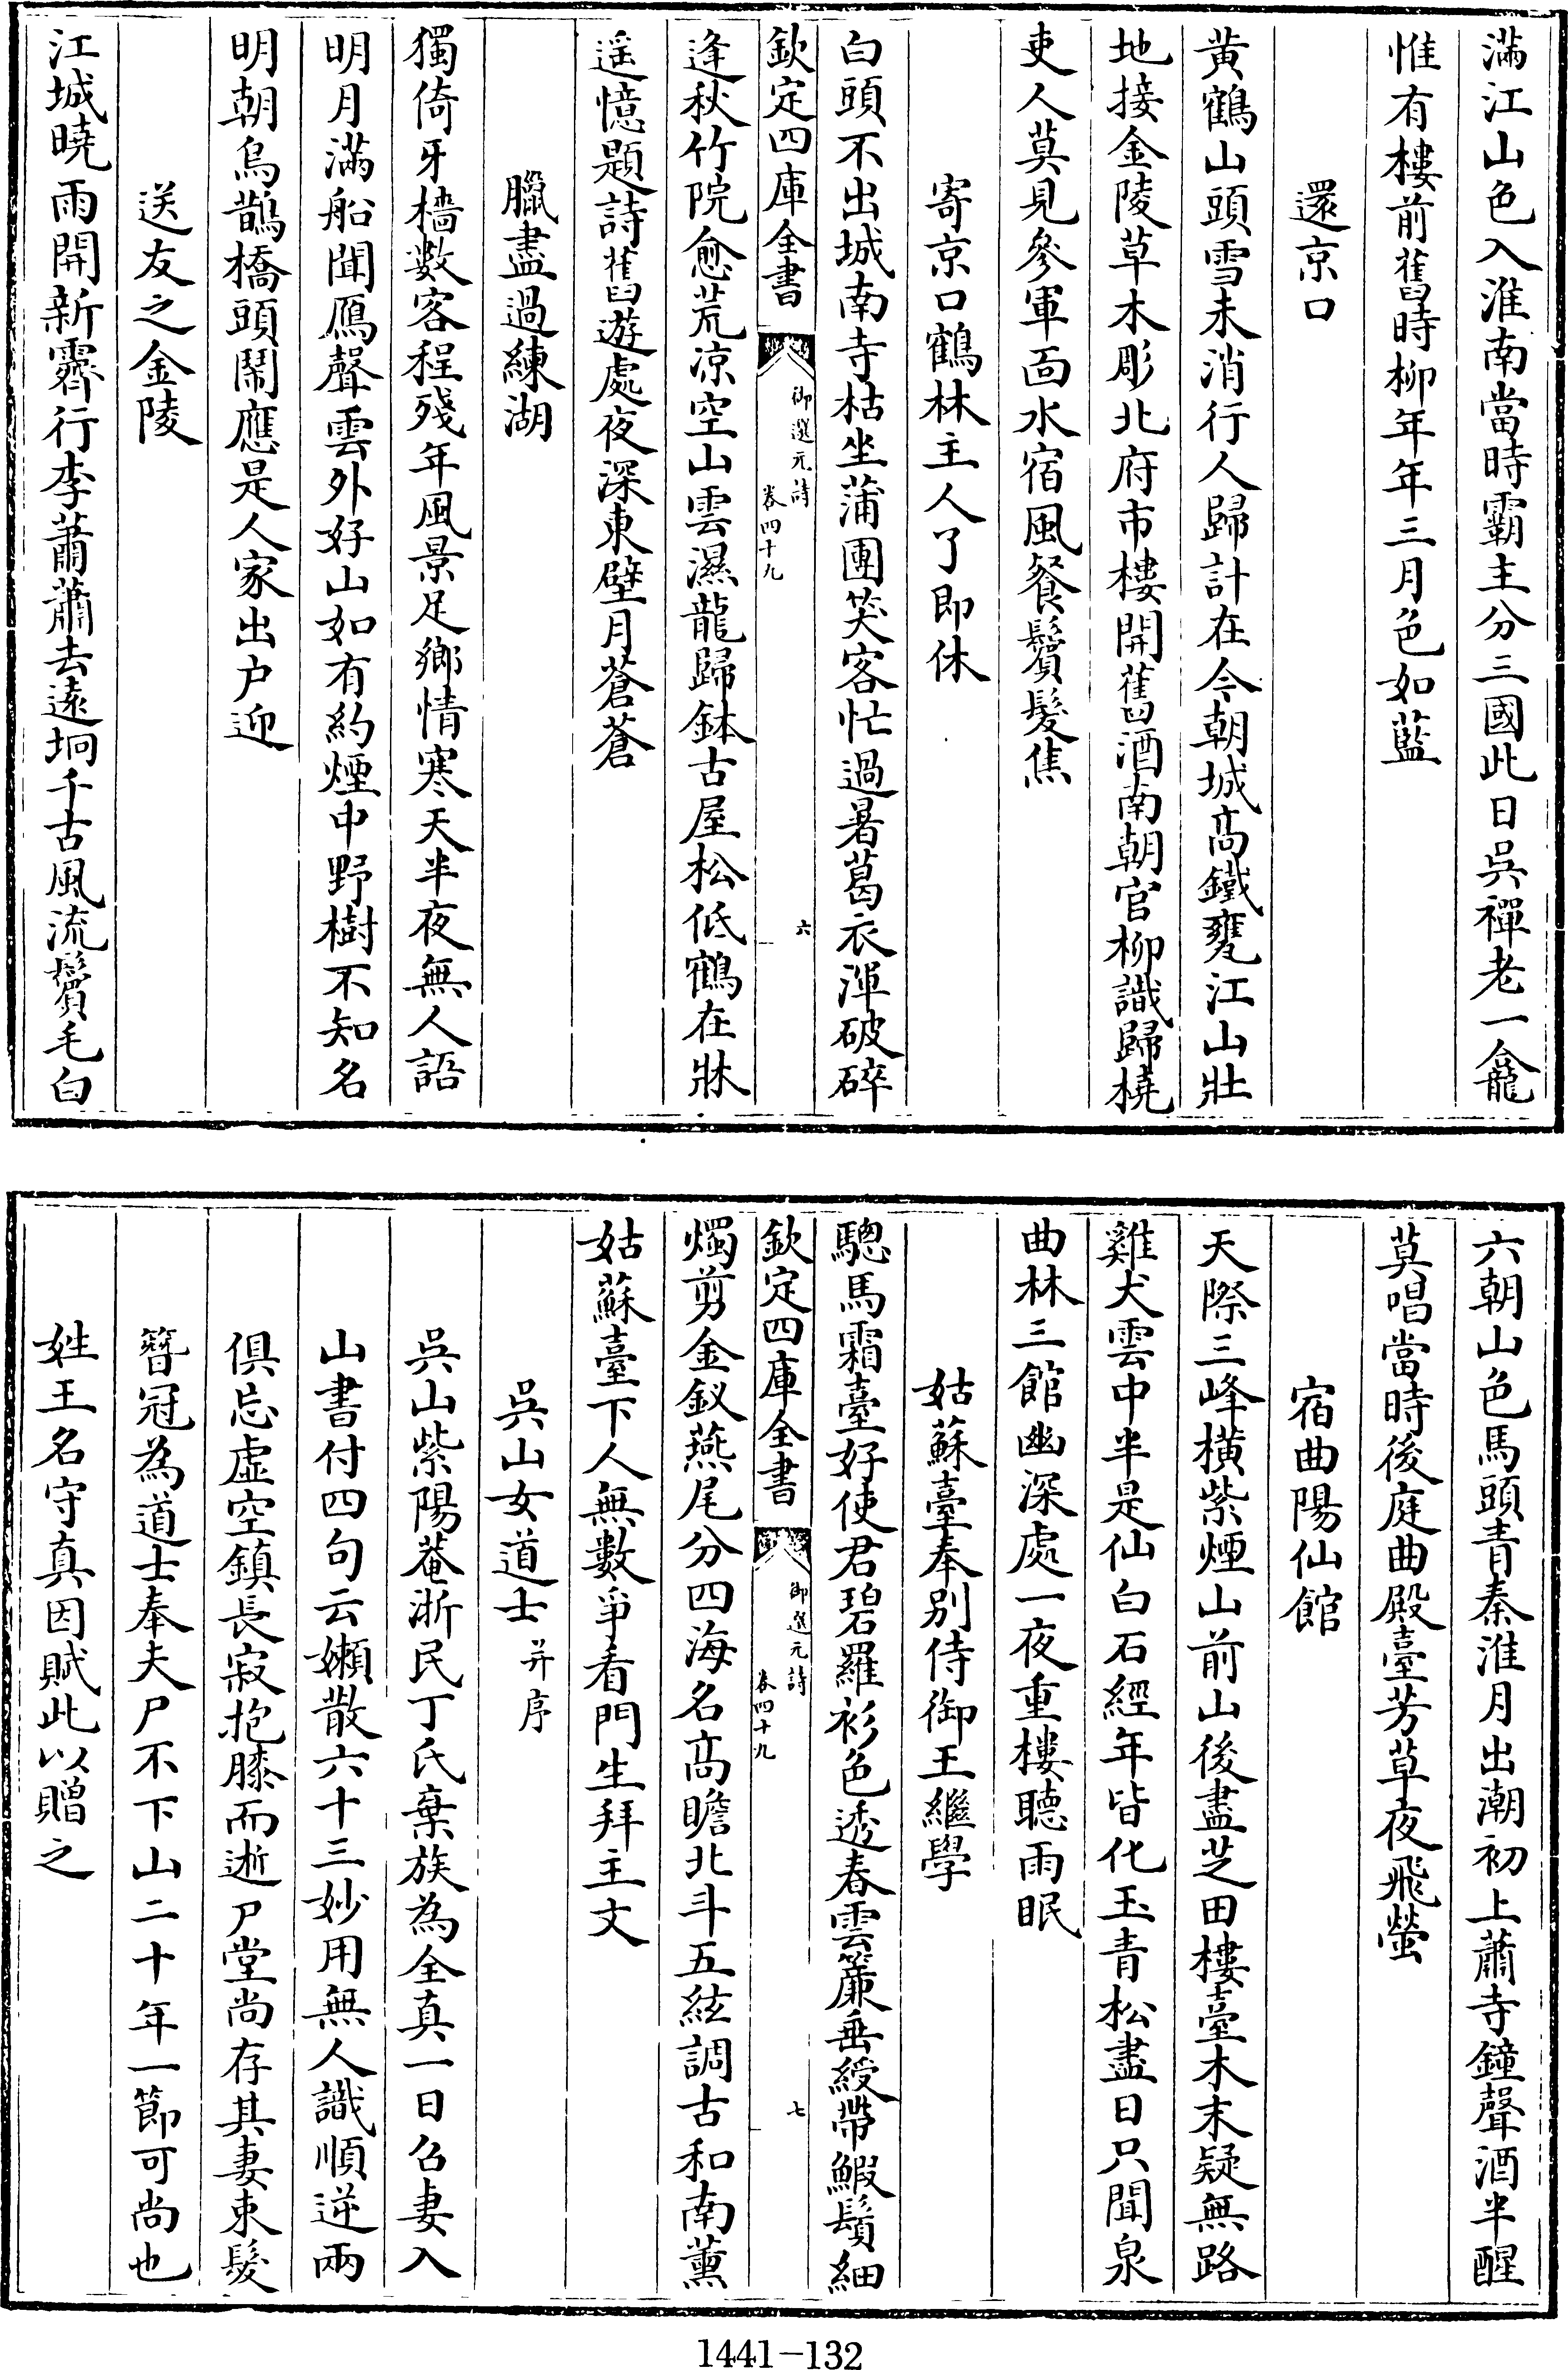 滿江山色入淮南當時霸主分三國此日吳禪老一龕
惟有樓前舊時柳年年三月色如藍
還京口
黃鶴山頭雪未消行人歸計在今朝城高鐵甕江山壯
地接金陵草木彫北府市樓開舊酒南朝官柳識歸橈
吏人莫見參軍面水宿風餐鬢髮焦
寄京口鶴林主人了即休
白頭不出城南寺枯坐蒲團笑客忙過暑葛衣渾破碎
欽定四庫全書
御選元詩
卷四十九
六
逢秋竹院愈荒凉空山雲濕龍歸鉢古屋松低鶴在牀
遥憶題詩舊遊處夜深東壁月蒼蒼
臘盡過練湖
獨倚牙檣數客程殘年風景足鄉情寒天半夜無人語
明月滿船聞鴈聲雲外好山如有約煙中野樹不知名
明朝烏鵲橋頭鬧應是人家出户迎
送友之金陵
江城曉雨開新霽行李蕭蕭去遠坰千古風流鬢毛白
六朝山色馬頭青秦淮月出潮初上蕭寺鐘聲酒半醒
莫唱當時後庭曲殿臺芳草夜飛螢
宿曲陽仙館
天際三峰橫紫煙山前山後盡芝田樓臺木末疑無路
雞犬雲中半是仙白石經年皆化玉青松盡日只聞泉
曲林三館幽深處一夜重樓聽雨眠
姑蘇臺奉别侍御王繼學
驄馬霜臺好使君碧羅衫色透春雲簾垂綬帶鰕鬚細
欽定四庫全書
御選元詩
卷四十九
七
燭剪金釵燕尾分四海名高瞻北斗五絃調古和南薰
姑蘇臺下人無數爭看門生拜主文
吳山女道士 并序
吳山紫陽菴浙民丁氏棄族為全真一日召妻入
山書付四句云嬾散六十三妙用無人識順逆兩
俱忘虛空鎮長寂抱膝而逝尸堂尚存其妻束髮
簪冠為道士奉夫尸不下山二十年一節可尚也
姓王名守真因賦此以贈之
1441-132